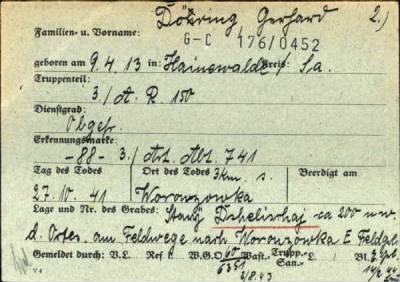 Döhring Gerhard 2.)
Familien- u. Vorname:
G-C 176/0452
geboren am 9.4.13 in: Hainewalde Kreis: Sa.
Truppenteil:
3./A.R. 150
Dienstgrad:
Obgefr.
Erkennungsmarke:
-88- 3./Art. Abt. 741
Tag des Todes Ort des Todes 3km s. Beerdigt am
27.10.41 Woronzowka
Lage und Nr. des Grabes: Dshelishaj ca 200 m w.
d. Ortes, am Feldwege nach Woronzowka E Feldgr.
Gemeldet durch: V.L. Ref W.G.O. Wast.- Trupp.- San.- Bl.
2/8.43